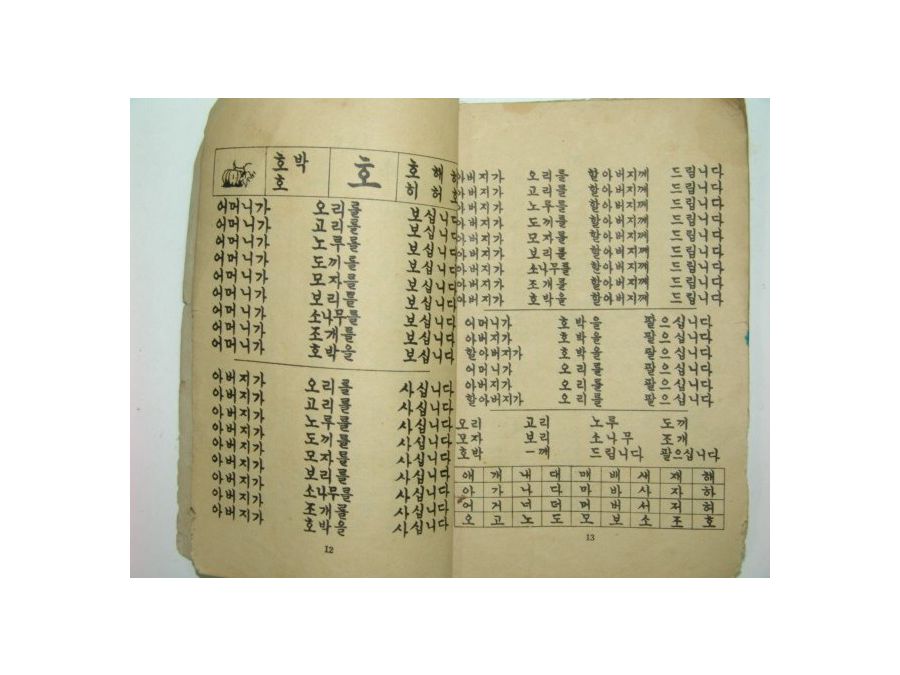 호박 호 호 해 하
호 허 허 호
어머니가 오리를 보십니다
어머니가 고리를 보십니다
어머니가 노루를 보십니다
어머니가 도끼를 보십니다
어머니가 모자를 보십니다
어머니가 보리를 보십니다
어머니가 소나무를 보십니다
어머니가 조개를 보십니다
어머니가 호박을 보십니다
아버지가 오리를 사십니다
아버지가 고리를 사십니다
아버지가 노루를 사십니다
아버지가 도끼를 사십니다
아버지가 모자를 사십니다
아버지가 보리를 사십니다
아버지가 소나무를 사십니다
아버지가 조개를 사십니다
아버지가 호박을 사십니다
12
아버지가 오리를 할아버지께 드립니다
아버지가 고리를 할아버지께 드립니다
아버지가 노루를 할아버지께 드립니다
아버지가 도끼를 할아버지께 드립니다
아버지가 모자를 할아버지께 드립니다
아버지가 보리를 할아버지께 드립니다
아버지가 소나무를 할아버지께 드립니다
아버지가 조개를 할아버지께 드립니다
아버지가 호박을 할아버지께 드립니다
어머니가 호박을 팔으십니다
아버지가 호박을 팔으십니다
할아버지가 호박을 팔으십니다
어머니가 오리를 팔으십니다
아버지가 오리를 팔으십니다
할아버지가 오리를 팔으십니다
오리 고리 노루 도끼
모자 보리 소나무 조개
호박 ―께 드립니다 팔으십니다
애 개 내 대 매 배 새 재 해
아 가 나 다 마 바 사 자 하
어 거 너 더 머 버 서 저 허
오 고 노 도 모 보 소 조 호
13